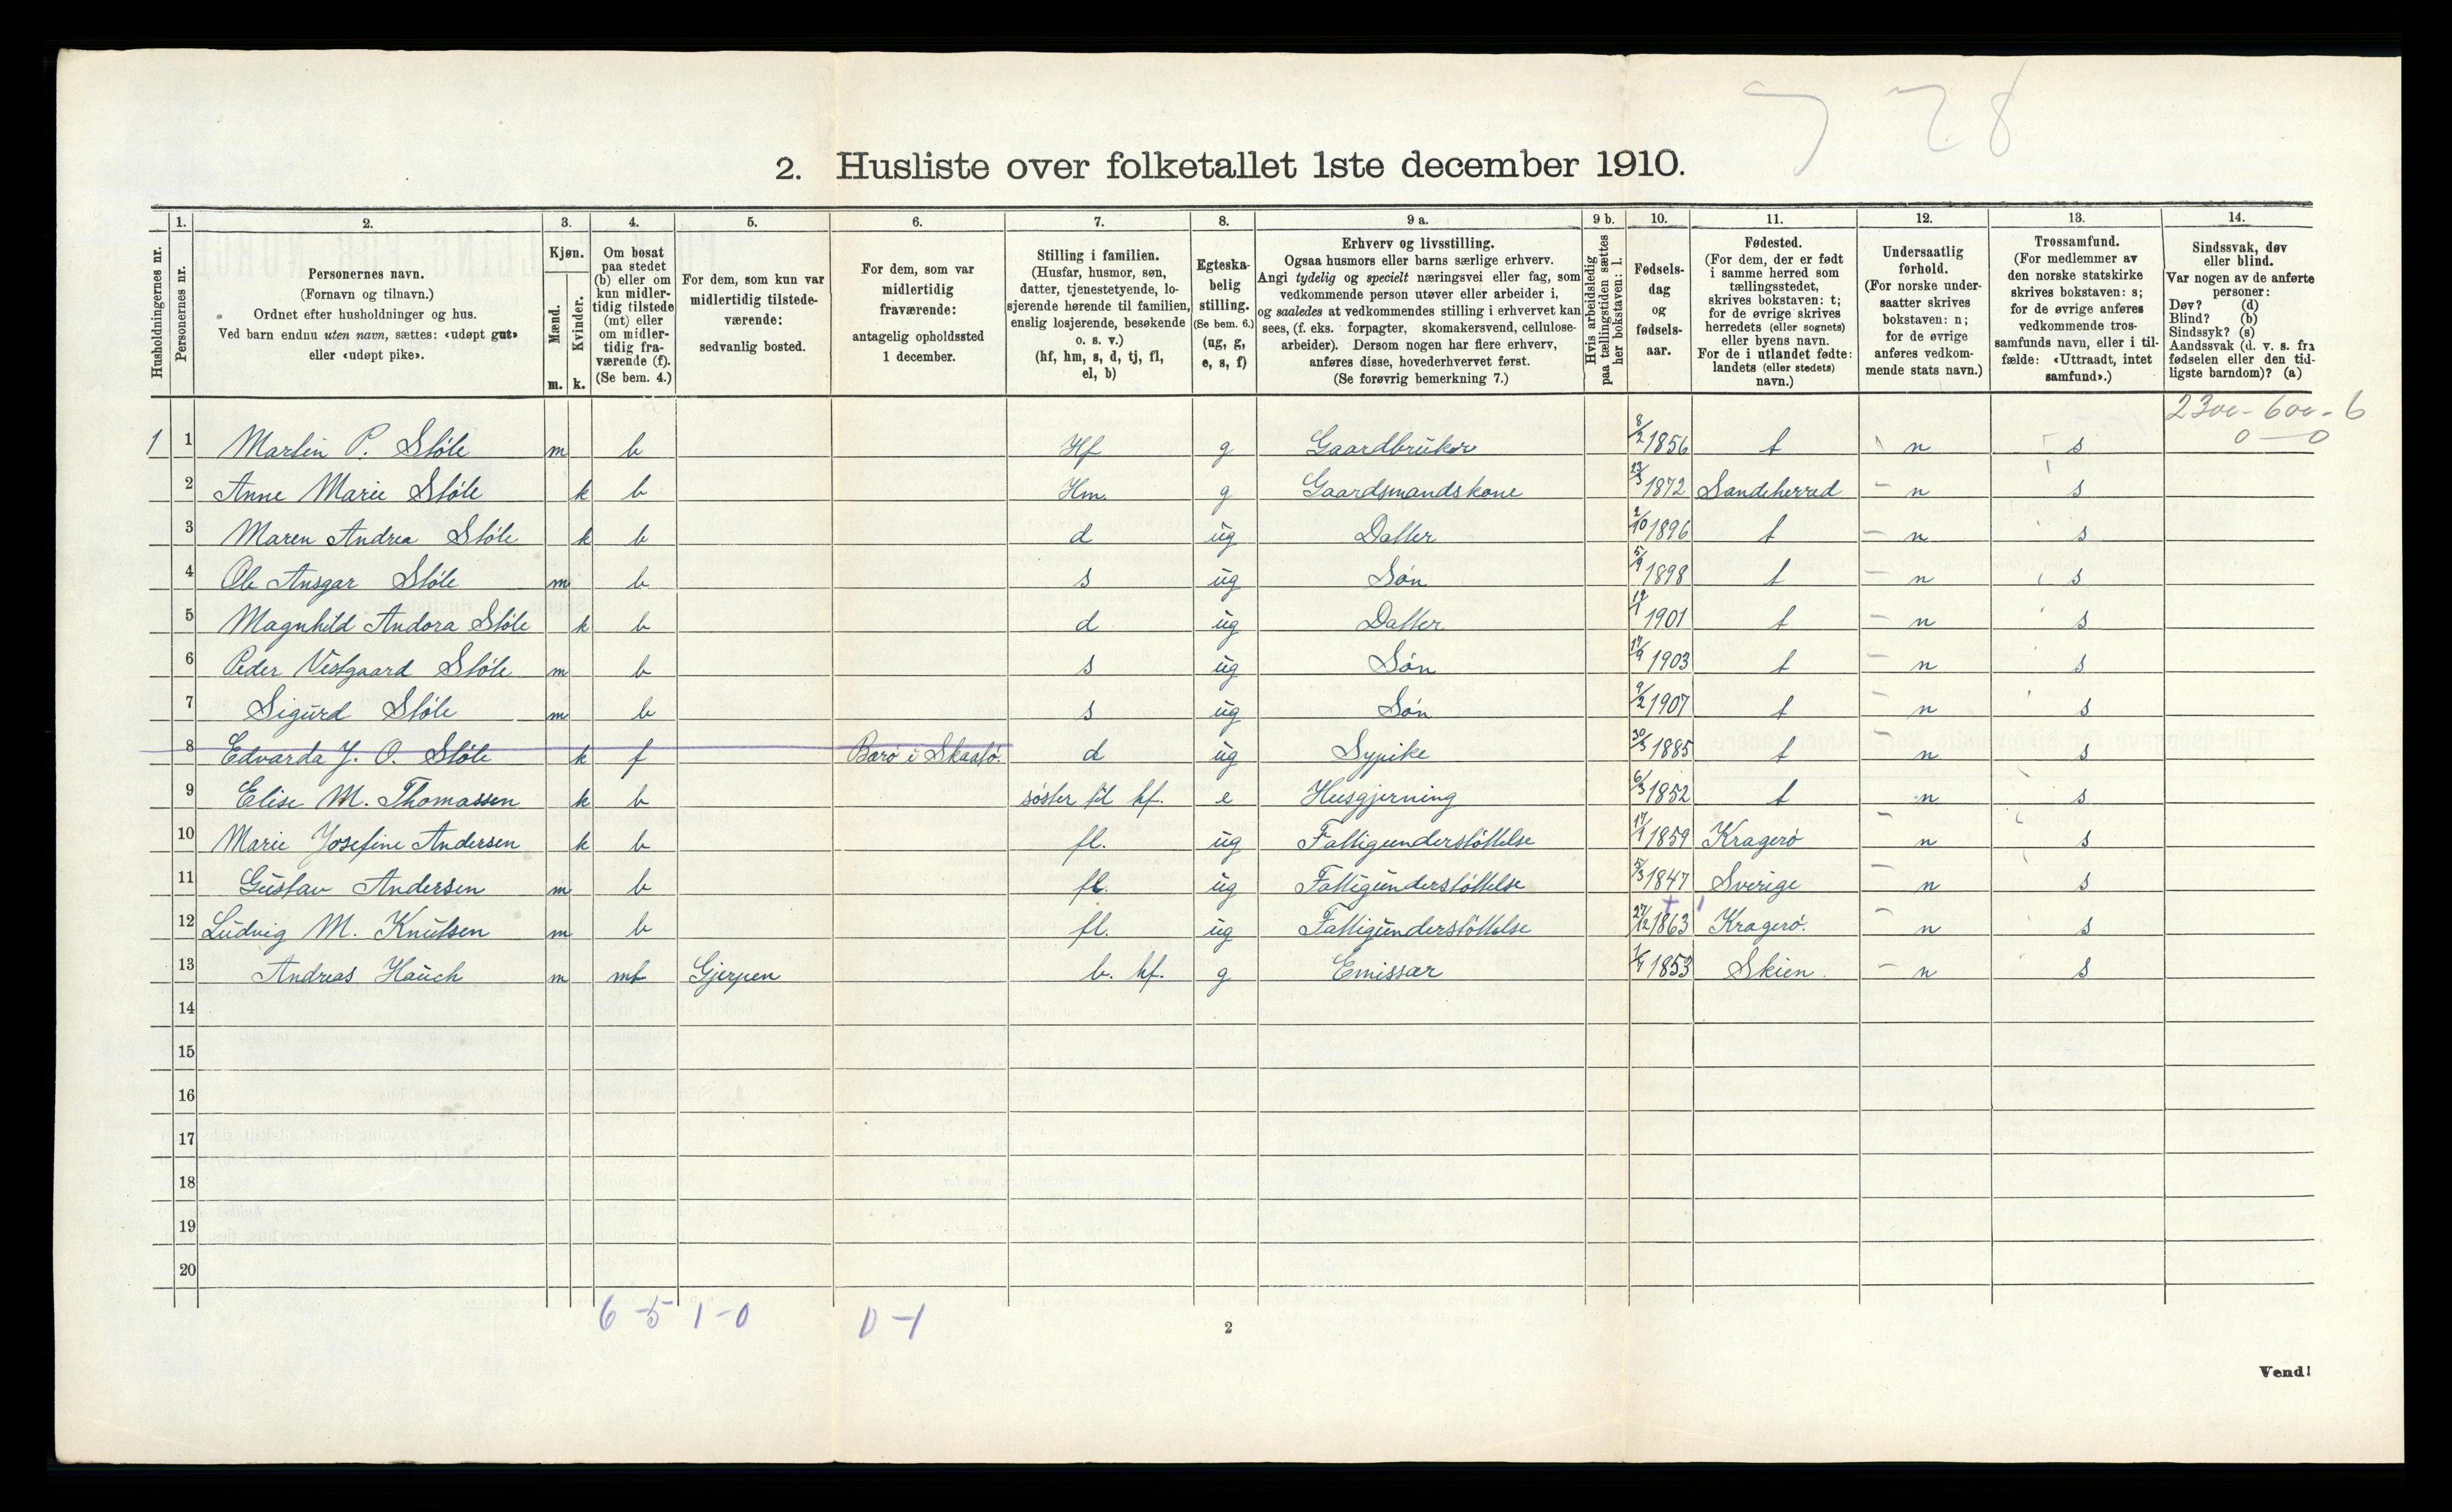 2. Husliste over folketallet 1ste december 1910.
Husholdningernes nr.
1. Personernes nr.
2. Personernes navn. (Fornavn og tilnavn.) Ordnet efter husholdninger og hus. Ved barn endnu uten navn, sættes: «udøpt gut» eller «udøpt pike».
3. Kjøn. Mænd. m. Kvinder. k.
4. Om bosat paa stedet (b) eller om kun midler- tidig tilstede (mt) eller om midler- tidig fra- værende (f). (Se bem. 4.)
5. For dem, som kun var midlertidig tilstede- værende: sedvanlig bosted.
6. For dem, som var midlertidig fraværende: antagelig opholdssted 1 december.
7. Stilling i familien. (Husfar, husmor, søn, datter, tjenestetyende, lo- sjerende hørende til familien, enslig losjerende, besøkende o. s. v.) (hf, hm, s, d, tj, fl, el, b)
8. Egteska- belig stilling. (Se bem. 6.) (ug, g, e, s, f)
9 a. Erhverv og livsstilling. Ogsaa husmors eller barns særlige erhverv. Angi tydelig og specielt næringsvei eller fag, som vedkommende person utøver eller arbeider i, og saaledes at vedkommendes stilling i erhvervet kan sees, (f. eks. forpagter, skomakersvend, cellulose- arbeider). Dersom nogen har flere erhverv, anføres disse, hovederhvervet først. (Se forøvrig bemerkning 7.)
9 b. Hvis arbeidsledig paa tællingstiden sættes her bokstaven: l.
10. Fødsels- dag og fødsels- aar.
11. Fødested. (For dem, der er født i samme herred som tællingsstedet, skrives bokstaven: t; for de øvrige skrives herredets (eller sognets) eller byens navn. For de i utlandet fødte: landets (eller stedets) navn.)
12. Undersaatlig forhold. (For norske under- saatter skrives bokstaven: n; for de øvrige anføres vedkom- mende stats navn.)
13. Trossamfund. (For medlemmer av den norske statskirke skrives bokstaven: s; for de øvrige anføres vedkommende tros- samfunds navn, eller i til- fælde: «Uttraadt, intet samfund».)
14. Sindssvak, døv eller blind. Var nogen av de anførte personer: Døv? (d) Blind? (b) Sindssyk? (s) Aandssvak (d. v. s. fra fødselen eller den tid- ligste barndom)? (a)
0 — 0
1 1 Martin P. Støle m b Hf g Gaardbruker 8/2 1856 t n s
2 Anne Marie Støle k b Hm. g Gaardsmandskone 13/3 1872 Sandeherred n s
3 Maren Andrea Støle k b d ug Datter 2/10 1896 t n s
4 Ole Ansgar Støle m b s ug Søn 5/9 1898 t n s
5 Magnhild Andora Støle k b d ug Datter 1901 t n s
6 Peder Vestgaard Støle m b s ug Søn 17/9 1903 t n s
7 Sigurd Støle m b s ug Søn 9/2 1907 t n s
8 Edvarda J. O. Støle k f Barø i Skaatø. d ug Sypike 30/3 1885 t n s
9 Elise M. Thomassen k b søster til hf. e Husgjerning 6/3 1852 t n s
10 Marie Josefine Andersen k b fl. ug Fattigunderstøttelse 1859 Kragerø n s
11 Gustav Andersen m b fl. ug Fattigunderstøttelse 5/3 1847 Sverige n s
12 Ludvig M. Knutsen m b fl. ug Fattigunderstøttelse 27/12 1863 Kragerø. n s
13 Andreas Hauch m mt Gjerpen b. hf. g Emissær 1853 Skien. n s
14
15
16
17
18
19
20
6 - 5 1 - 0 0 - 1
2
Vend!